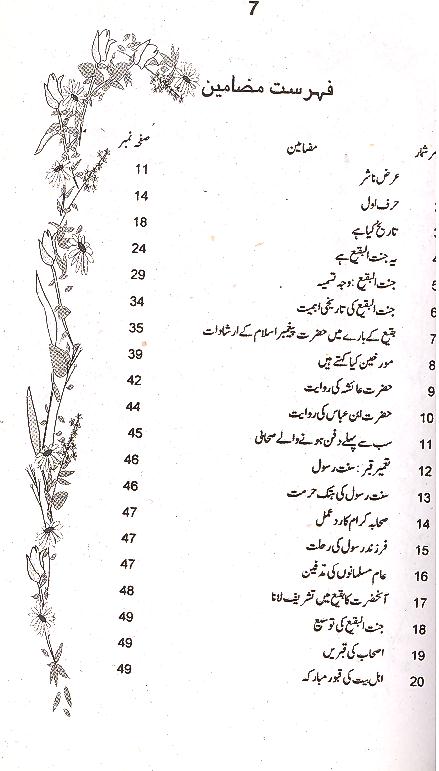 7
فہرست مضامین
نمبر شمار مضامین صفحہ نمبر
عرض ناشر 11
حرف اول 14
3 تاریخ کیا ہے 18
4 یہ جنت البقیع ہے 24
5 جنت البقیع : وجہ تسمیہ 29
6 جنت البقیع کی تاریخی اہمیت 34
7 بقیع کے بارے میں حضرت پیغمبر اسلام کے ارشادات 35
8 مورخین کیا کہتے ہیں 39
9 حضرت عائشہ کی روایت 42
10 حضرت ابن عباس کی روایت 44
11 سب سے پہلے دفن ہونے والے صحابی 45
12 تعمیر قبر : سنت رسول 46
13 سنت رسول کی ہتک حرمت 46
14 صحابہ کرام کا رد عمل 47
15 فرزند رسول کی رحلت 47
16 عام مسلمانوں کی تدفین 47
17 آنحضرت کا بقیع میں تشریف لانا 48
18 جنت البقیع کی توسیع 49
19 اصحاب کی قبریں 49
20 اہل بیت کی قبور مبارکہ 49